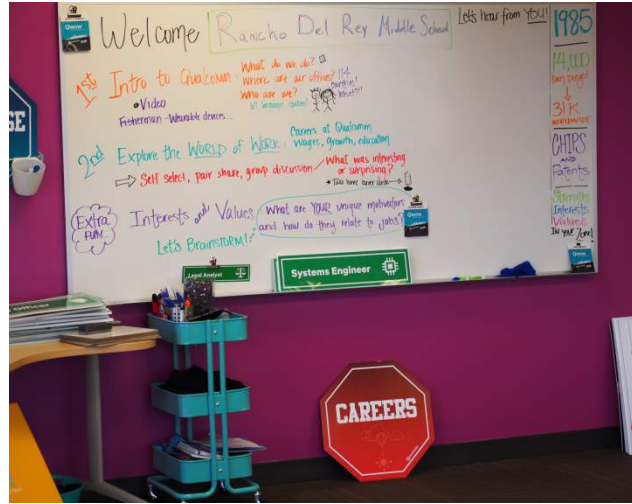 Welcome Rancho Del Rey Middle School
Let's Hear from YOU!
1st Intro to Qualcomm:
What do we do?
Where are our offices?
Who are we?
• Video
Fisherman - Wearable devices...
2nd Explore the WORLD of WORK:
Careers at Qualcomm
Wages, growth, education
Self select, pair share, group discussion
What was interesting
or surprising?
• Take home career
Extra
FUN...
Interests and Values:
What are YOUR unique motivators
and how do they relate to jobs?
Let's Brainstorm!
1985
14,000
San Diego!
31K
worldwide
CHIPS
AND
Patents
Strengths
Interests
Values
IN your Zone!
Legal Analyst
Systems Engineer
Officer
SE
CAREERS